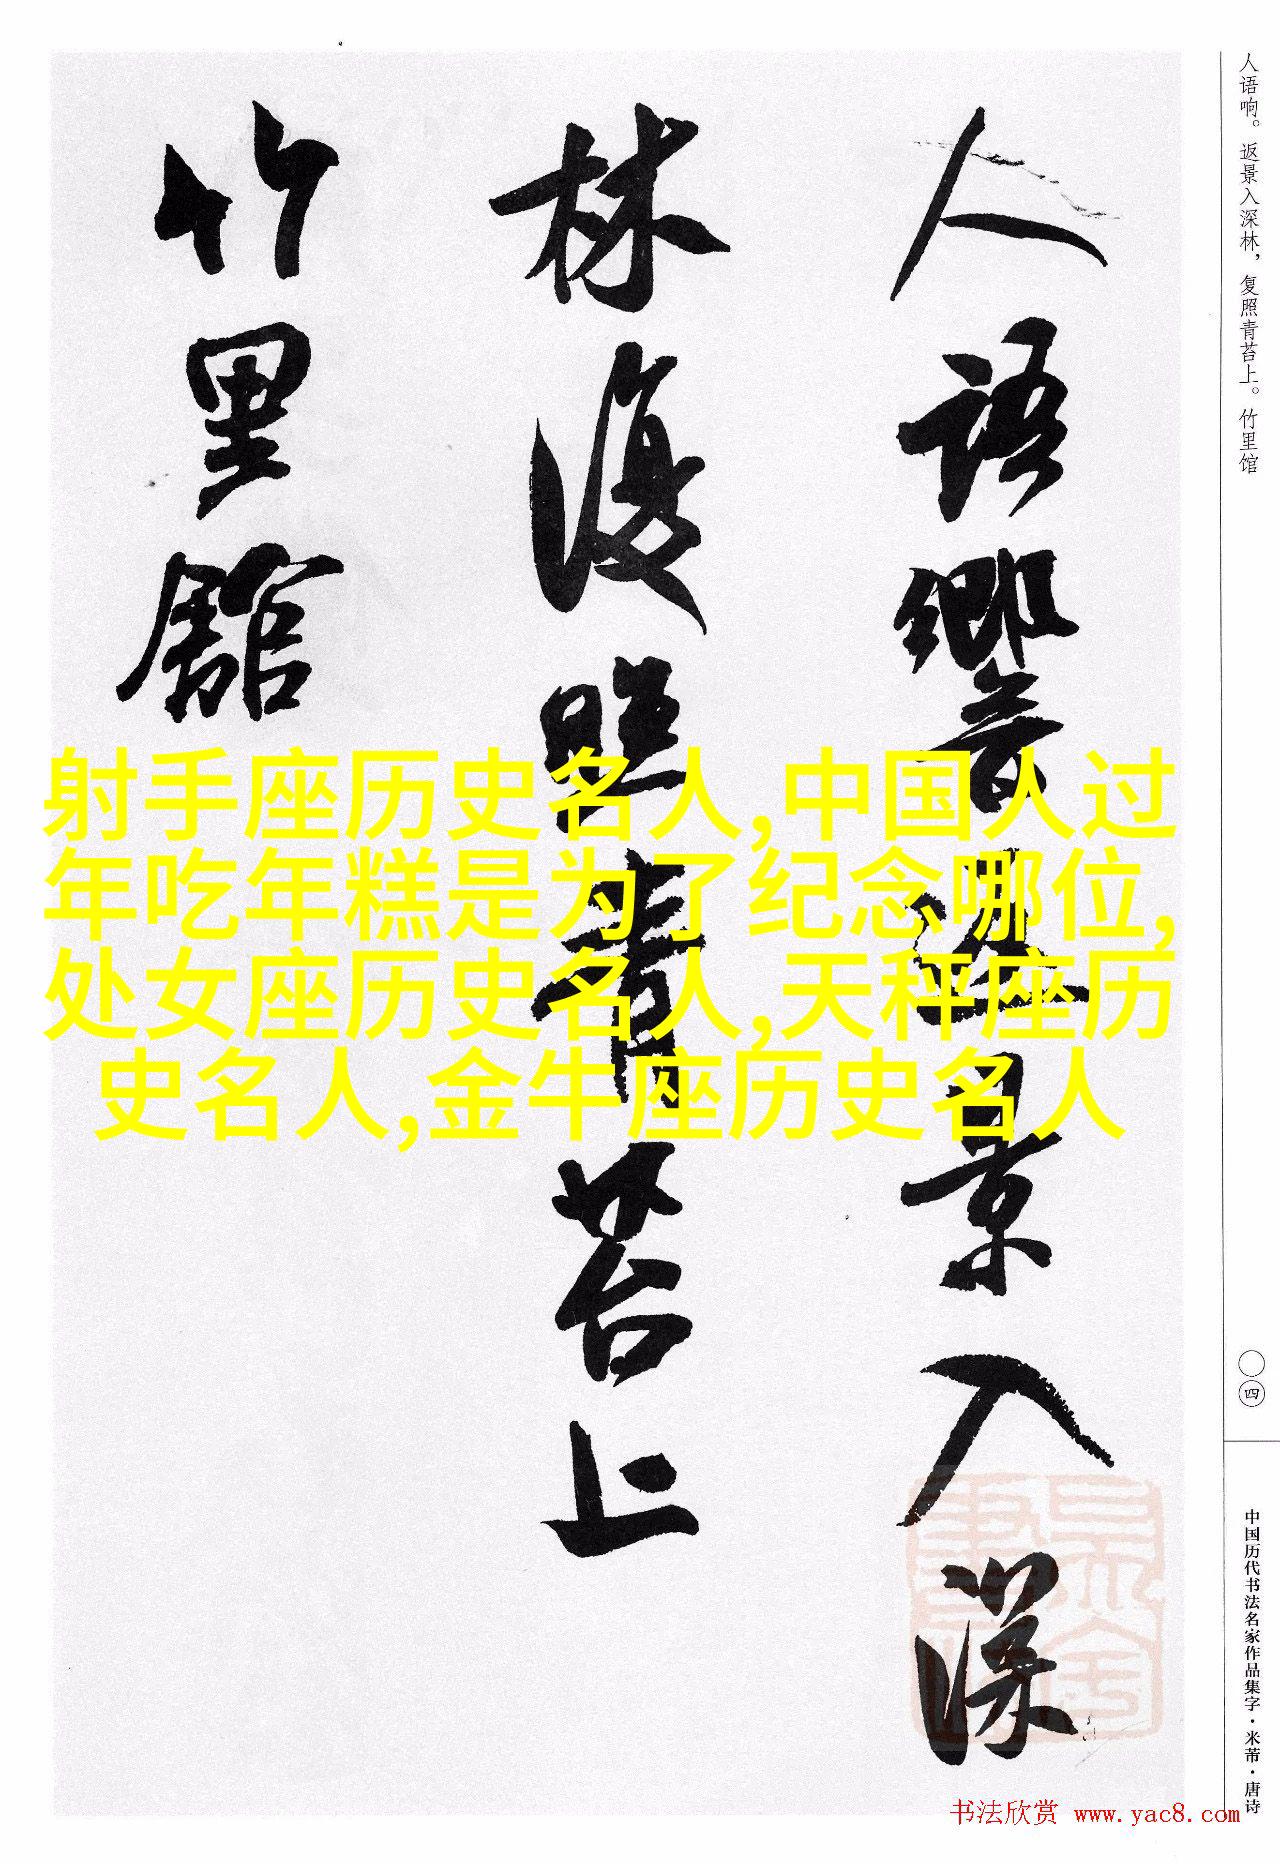 人语响。返景入深林，复照青苔上。竹里馆
人語響返景入深
林復照青苔上
竹里館
射手座历史名人,中国人过
年吃年糕是为了纪念哪位,
处女座历史名人,天秤座历
史名人,金牛座历史名人
〇四
中国历代书法名家作品集字·米芾·唐诗
书法欣赏 www.yac8.com